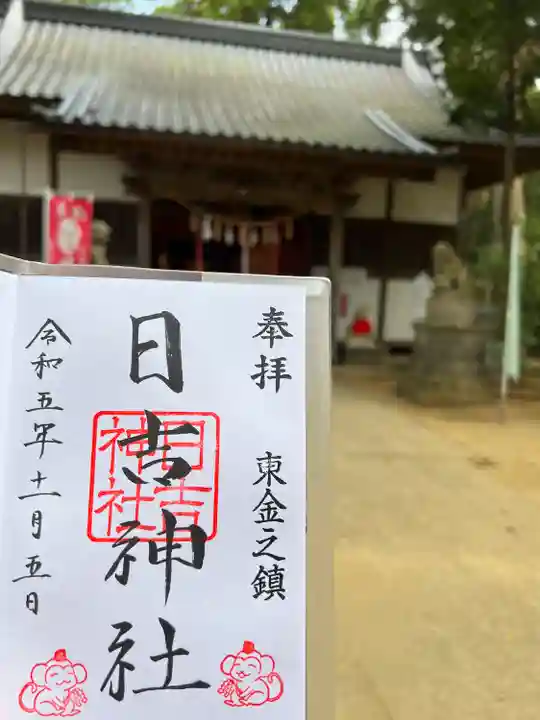 奉拝　東金之鎮
日吉神社
日吉
神社
令和五年十一月五日